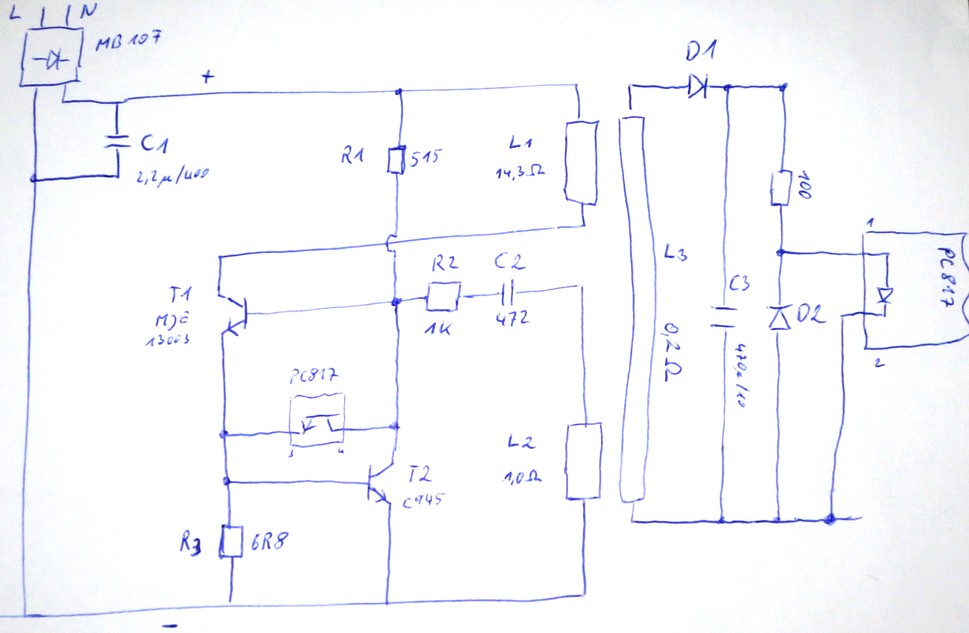 L N
MB107
+
C1
2,2µ/400
R1
515
L1
14,3Ω
D1
100
1
PC817
2
L3
0,2Ω
R2
1K
C2
472
C3
470µ/10
D2
T1
MJE
13003
PC817
3 4
T2
C945
L2
1,0Ω
R3
6R8
-